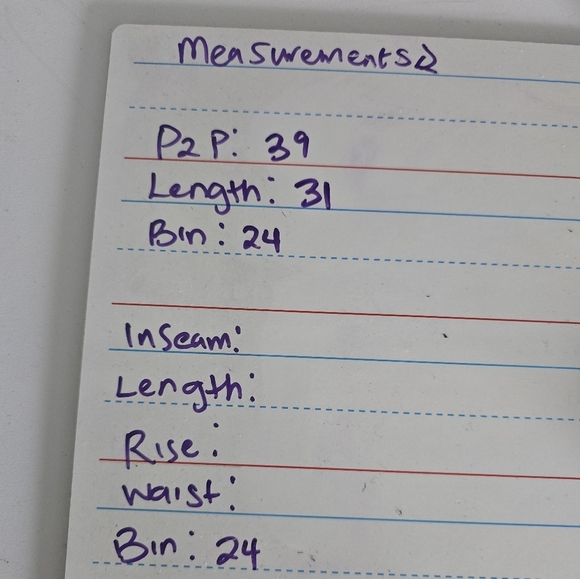 Measurements
P2P: 39
Length: 31
Bin: 24
Inseam:
Length:
Rise:
Waist:
Bin: 24